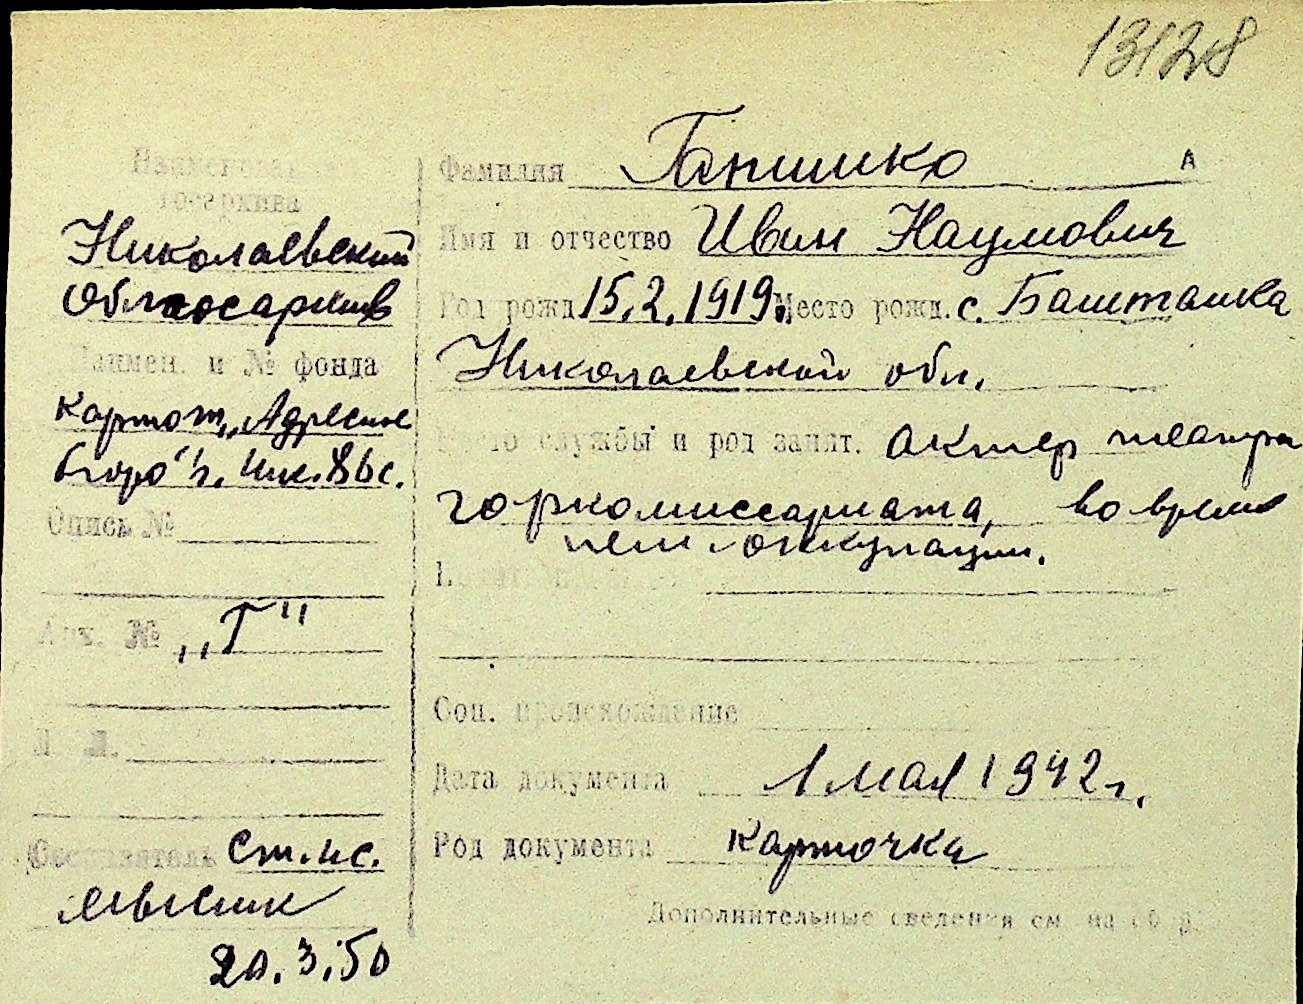 13128
Наименование
госархива
Николаевский
Облгосархив
Наимен. и № фонда
Картот. „Адресное
бюро" г. Ник.
Опись №
Арх. № „Г"
Л. Л.
Составитель ст. н. с.
20.3.50
Фамилия А
Имя и отчество Иван Наумович
Год рожд. 15.2.1919. Место рожд. с. Баштанка
Николаевской обл.
Место службы и род занят. актер театра
горкомиссариата, во время
нем. оккупации.
Соц. происхождение
Дата документа 1 мая 1942 г.
Род документа карточка
Дополнительные сведения см. на об.